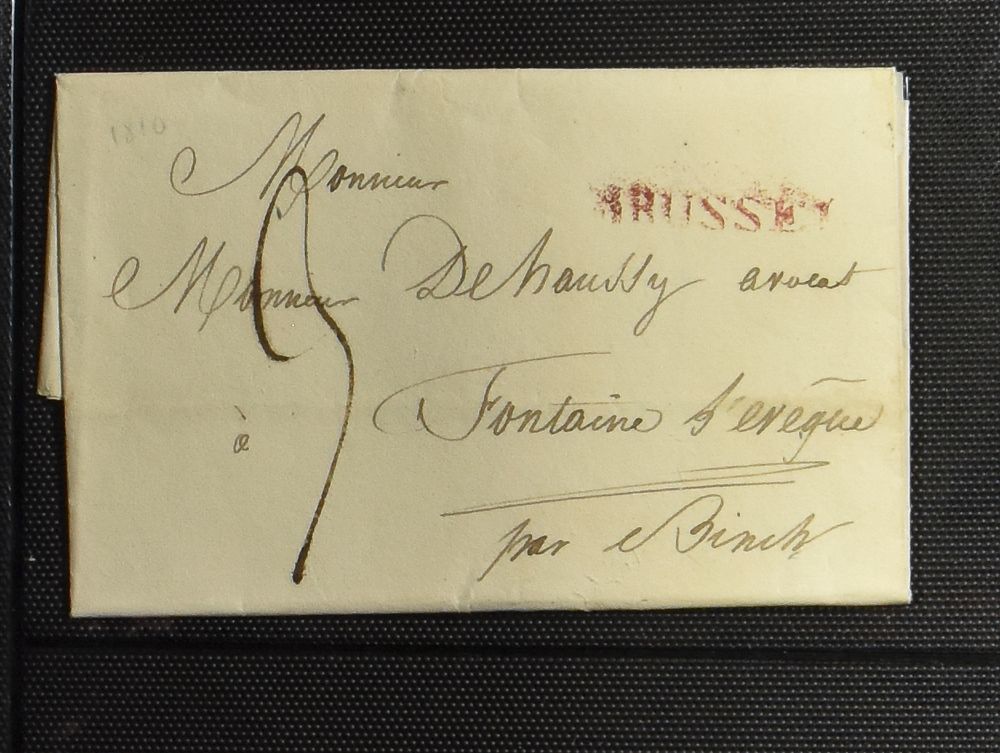 1810
Monsieur
BRUSSEL
Monsieur Dehaussy avocat
3
à Fontaine L'evêque
par Binch